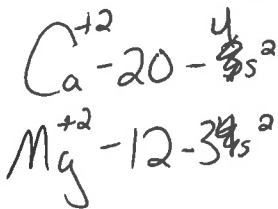 Ca+2 - 20 - 4s2
Mg+2 - 12 - 3s2